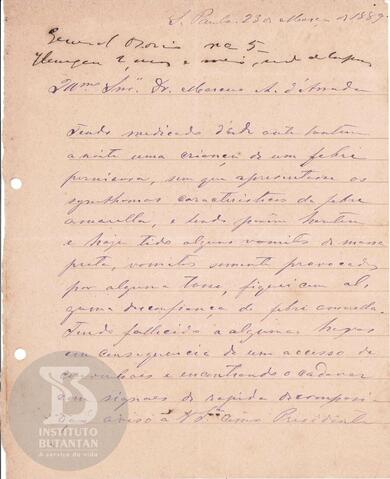 S. Paulo 23 de Março de 1889
General Ozorio nº 5
2 annos e meio,
Illmo Snr. Dr. Marcos A. d'Arruda
Tendo medicado d'esde ante hontem
a noite uma criança de um febre
perniciosa, sem que apresentasse os
symthomas caracteristicos da febre
amarella, e tendo porém hontem
e hoje tido alguns vomitos de massa
preta, vomitos somente provocados
por alguma tosse, fiquei com al
guma desconfiança de febre amarella.
Tendo fallecido a algumas horas
em consequencia de um accesso de
convulsões e encontrando o cadaver
com signaes de rapida decomposi
aviso a Vª Sª como Presidente
INSTITUTO
BUTANTAN
A serviço da vida